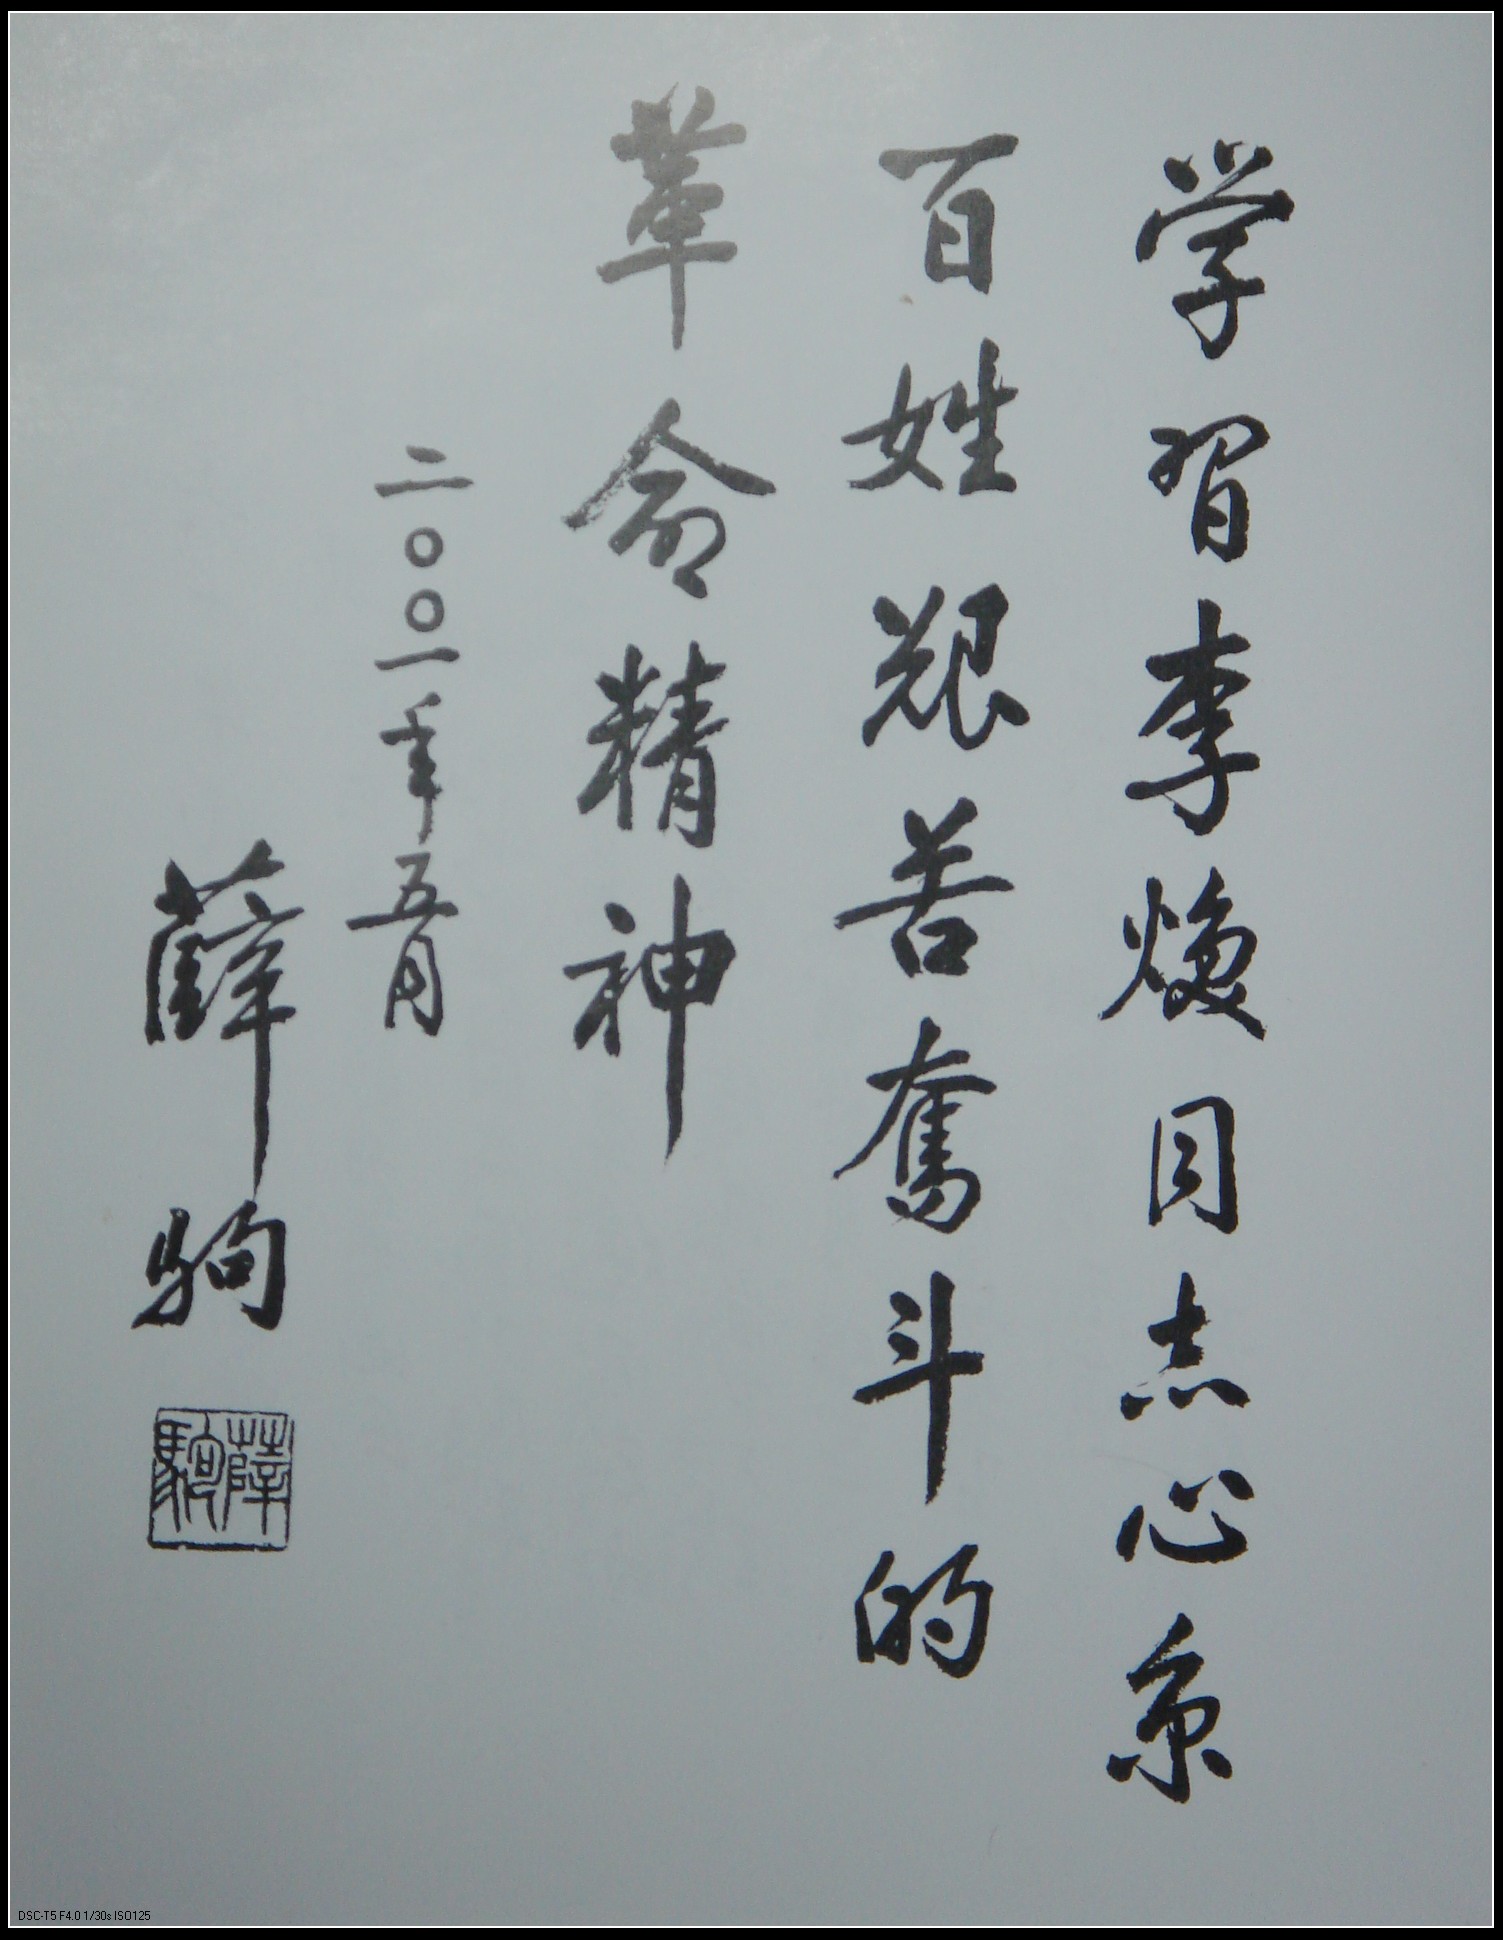 学习李焕同志心系
百姓艰苦奋斗的
革命精神
二〇〇一年五月
薛驹
薛駒
DSC-T5 F4.0 1/30s ISO125